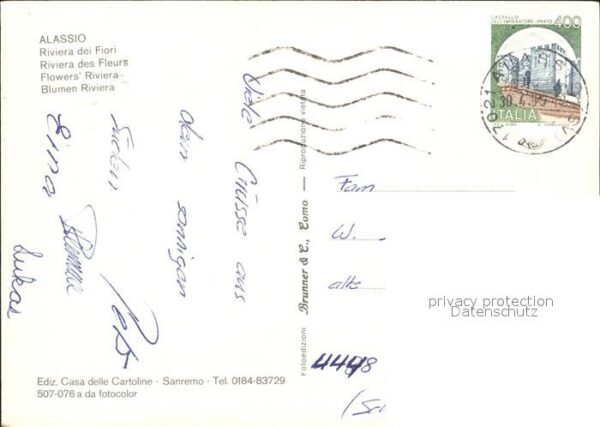 ALASSIO
Riviera dei Fiori
Riviera des Fleurs
Flowers' Riviera
Blumen Riviera
Viele Grüsse aus
dem sonnigen
Süden
Erna
Lukas
Ediz. Casa delle Cartoline - Sanremo - Tel. 0184-83729
507-076 a da fotocolor
Fotoedizioni Brunner & C., Como — Riproduzione vietata
CASTELLO
DELL'IMPERATORE-PRATO
400
ITALIA
17021
30.4.
Fam
W.
alte
privacy protection
Datenschutz